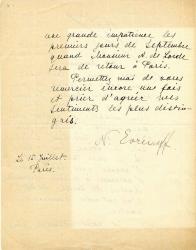 une grande impatience les
premiers jours de Septembre
quand Monsieur A. de Lorde
sera de retour à Paris.
Permettez moi de vous
remercier encore une fois
et prier d'agréer mes
sentiments les plus distin-
gués.
N. Evreinoff
Le 15 Juillet.
Paris.